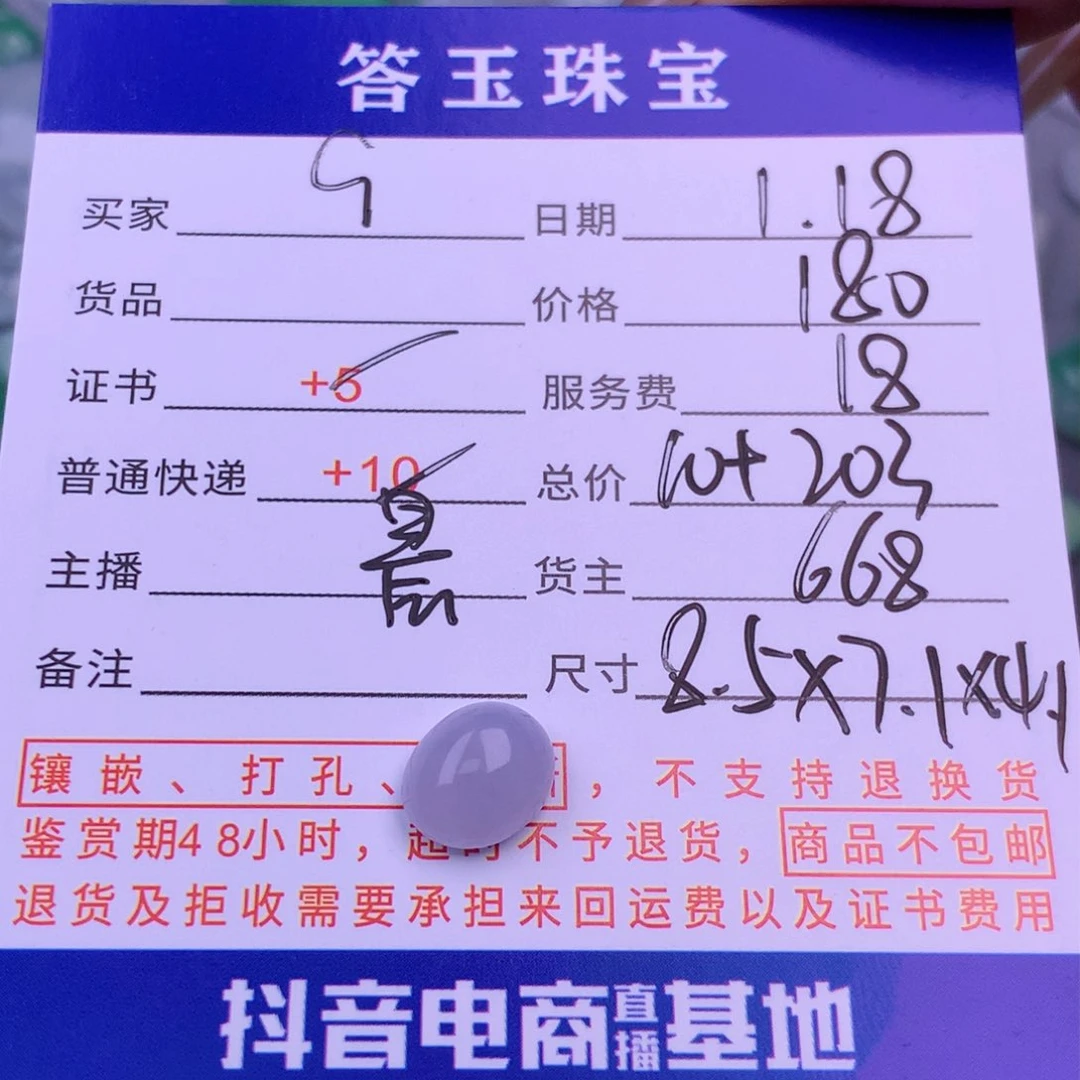 答玉珠宝
买家 G 日期 1.18
货品 价格 180
证书 +5 服务费 18
普通快递 +10 总价 10+203
主播 货主 668
备注 尺寸 8.5×7.1×4.1
镶嵌、打孔、，不支持退换货
鉴赏期48小时，超时不予退货，商品不包邮
退货及拒收需要承担来回运费以及证书费用
抖音电商直播基地